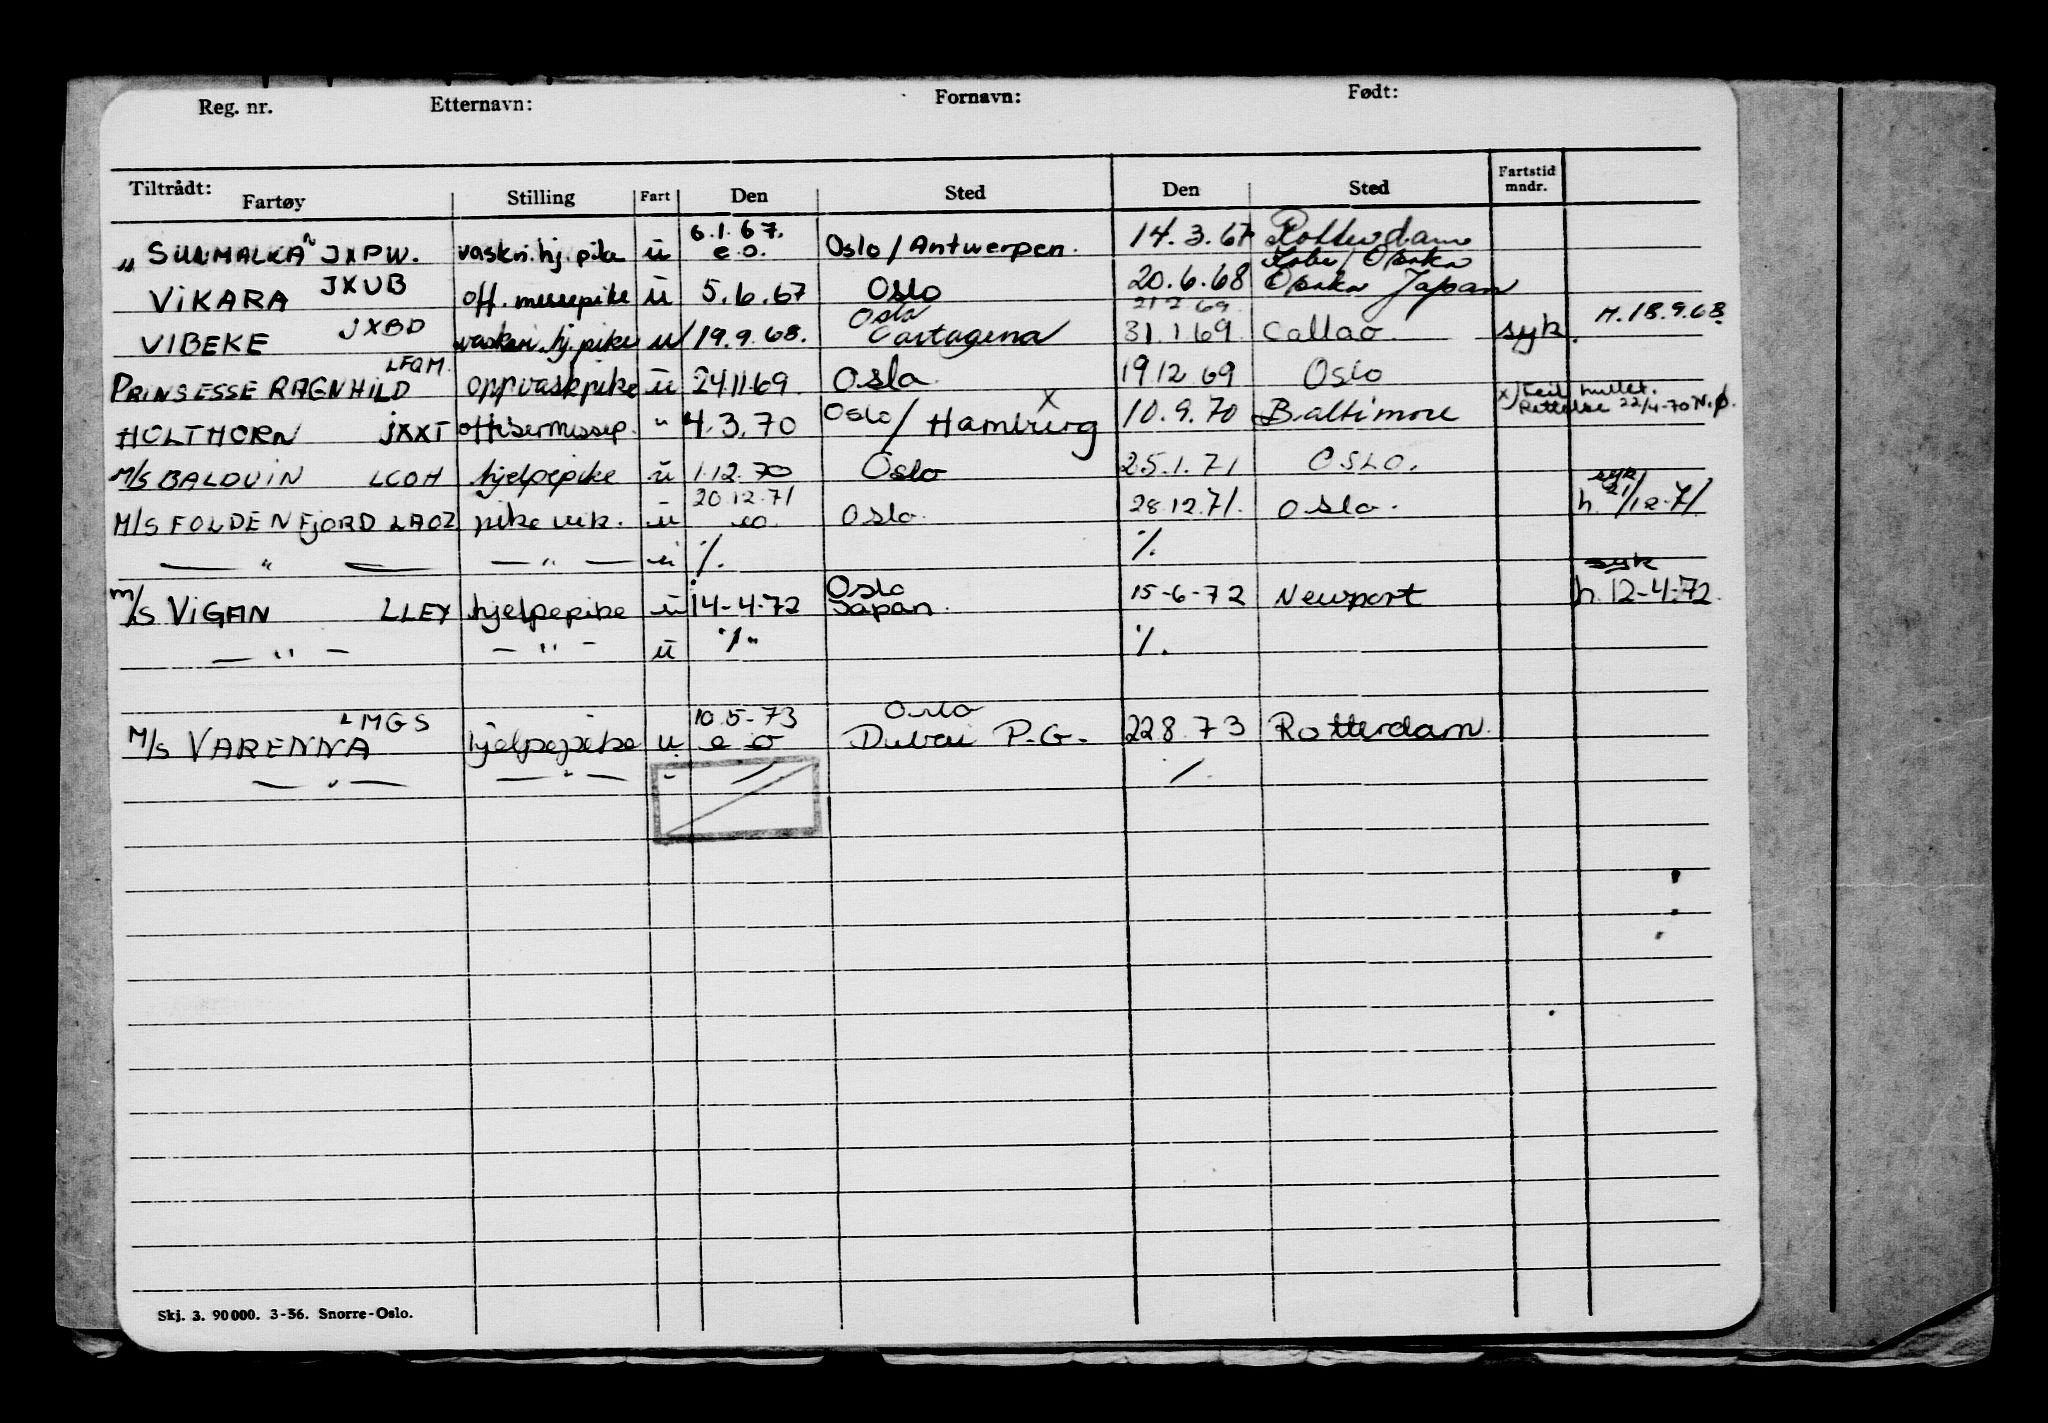 Reg. nr. Etternavn: Fornavn: Født:
Tiltrådt: Fartøy Stilling Fart Den Sted Den Sted Fartstid mndr.
„SUNMALKA" JXPW. vaskri.hj.pike ū 6.1.67. e.o. Oslo/Antwerpen. 14.3.67 Rotterdam
VIKARA JXUB off. messepike ū 5.6.67 Oslo 20.6.68 Kobe/Osaka Osaka Japan
VIBEKE JXBD vaskeri.hj.pike u 19.9.68. Oslo Cartagena 21 2 69. 31.1.69. Callao syk. H.18.9.68.
PRINSESSE RAGNHILD LFQM. oppvaskpike ū 24.11.69 Oslo 19.12.69 Oslo
HOLTHORN JXXT offisermessep. " 4.3.70 Oslo/Hamburg x 10.9.70 Baltimore x) Feil hullet. Rettelse 22/4-70 N.Ø.
M/S BALDUIN LCOH hjelpepike ū 1.12.70 Oslo 25.1.71 OSLO.
M/S FOLDENFJORD LAOZ pike vik. ū 20.12.71 eo Oslo 28.12.71. Oslo. syk h. 21/12-71
— " — — " — ū ٪. ٪.
M/S VIGAN LLEY hjelpepike ū 14-4-72 Oslo Japan. 15-6-72 Newport syk h. 12-4-72.
— " — — " — ū ٪" ٪.
M/S VARENNA LMGS hjelpepike u 10.5-73 e o Oslo Dubai P.G. 22 8.73 Rotterdam.
— " — — " —
Skj. 3. 90000. 3-56. Snorre-Oslo.